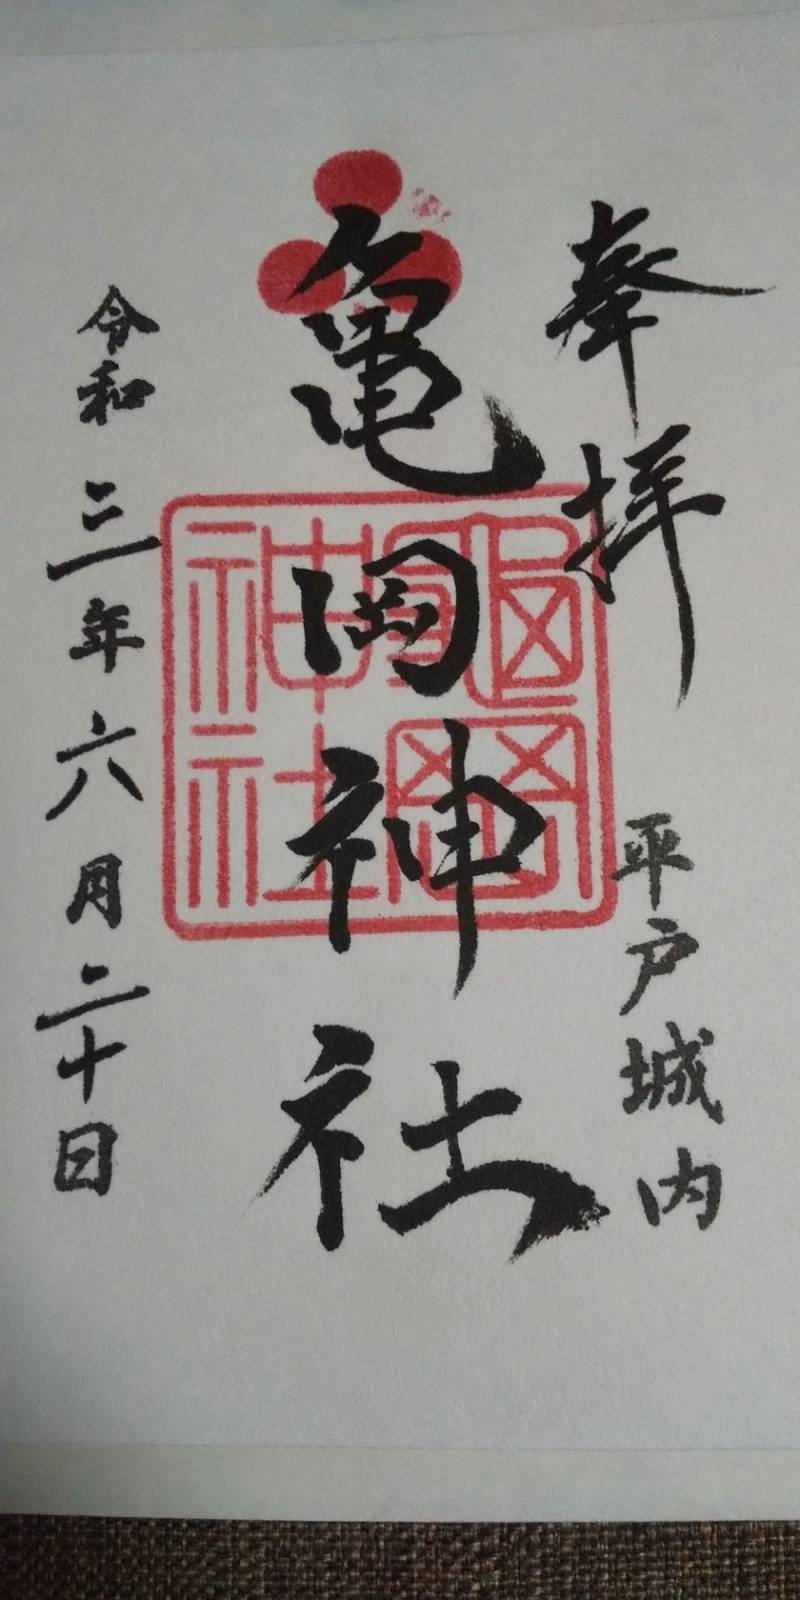 奉拝
平戸城内
亀岡神社
亀岡神社
令和三年六月二十日